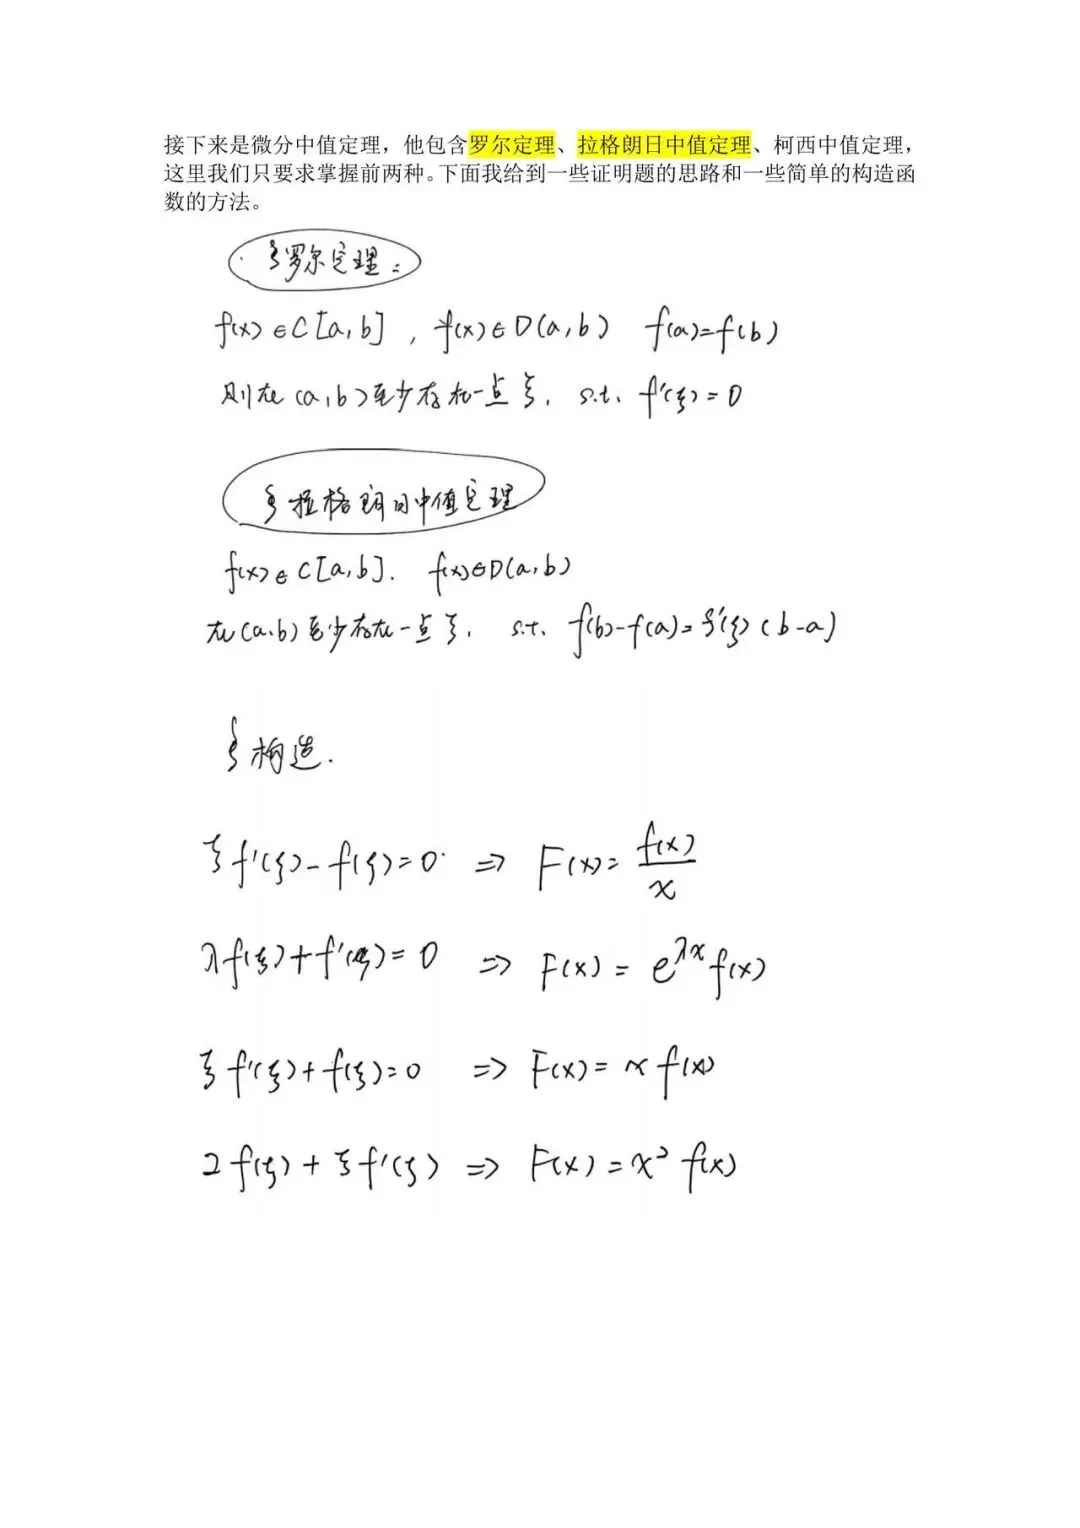 接下来是微分中值定理，他包含罗尔定理、拉格朗日中值定理、柯西中值定理，
这里我们只要求掌握前两种。下面我给到一些证明题的思路和一些简单的构造函
数的方法。
罗尔定理:
f(x)∈C[a,b], f(x)∈D(a,b) f(a)=f(b)
则在(a,b)至少存在一点ξ, s.t. f'(ξ)=0
拉格朗日中值定理
f(x)∈C[a,b]. f(x)∈D(a,b)
在(a,b)至少存在一点ξ, s.t. f(b)-f(a)=f'(ξ)(b-a)
构造.
ξf'(ξ)-f(ξ)=0 ⇒ F(x)=f(x)/x
λf(ξ)+f'(ξ)=0 ⇒ F(x)=e^{λx}f(x)
ξf'(ξ)+f(ξ)=0 ⇒ F(x)=xf(x)
2f(ξ)+ξf'(ξ) ⇒ F(x)=x²f(x)